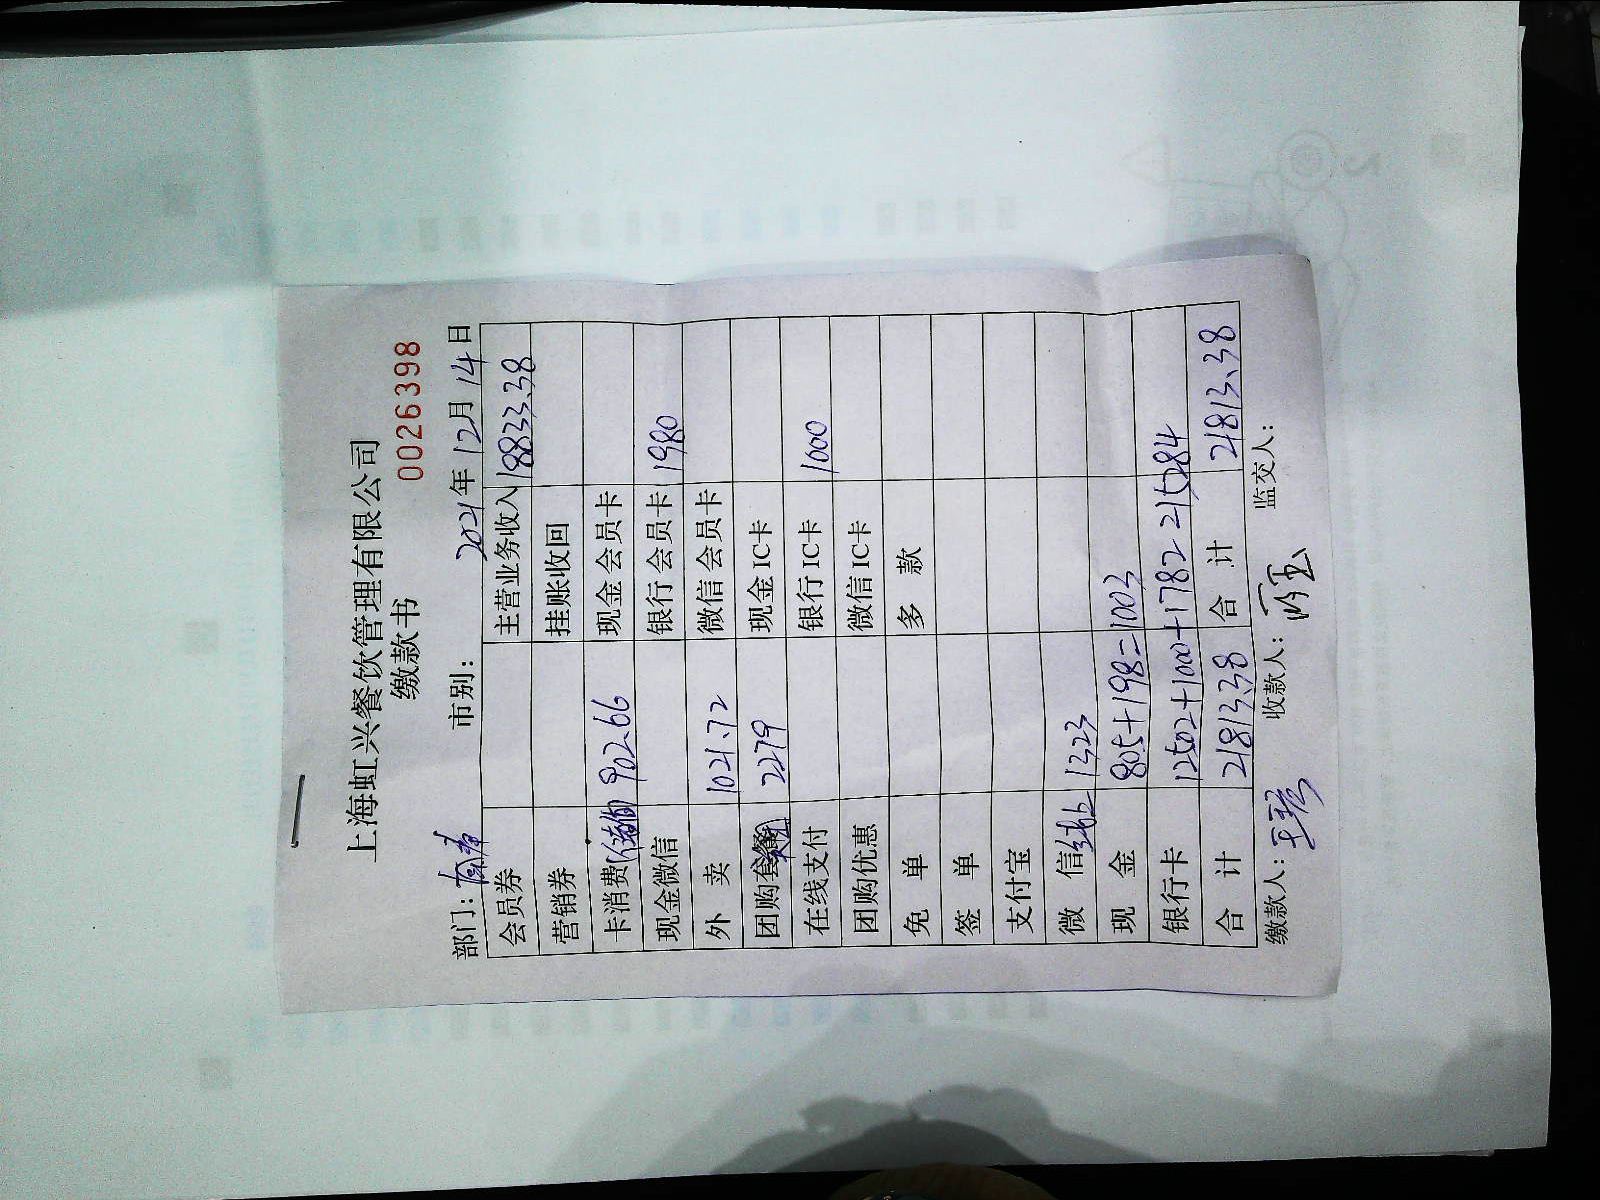 上海虹兴餐饮管理有限公司
缴款书
0026398
部门: 市别: 2021年12月14日
会员券 主营业务收入 18833.38
营销券 挂账收回
卡消费 902.66 现金会员卡
现金微信 银行会员卡 1980
外 卖 1021.72 微信会员卡
团购套餐 2279 现金IC卡
在线支付 银行IC卡 1000
团购优惠 微信IC卡
免 单 多 款
签 单
支付宝
微 信 1323
现 金 805+198=1003
银行卡 12502+1000+1782 215284
合 计 21813.38 合 计 21813.38
缴款人: 收款人: 监交人: